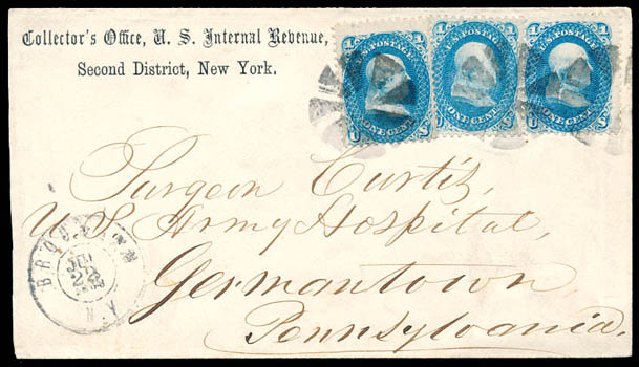 Collector's Office, U. S. Internal Revenue,
Second District, New York.
U.S. POSTAGE
ONE CENT
U S
1 1
U.S. POSTAGE
ONE CENT
U S
1 1
U.S. POSTAGE
ONE CENT
U S
1 1
Surgeon Curtis,
U S Army Hospital,
Germantown
Pennsylvania.
N.Y.